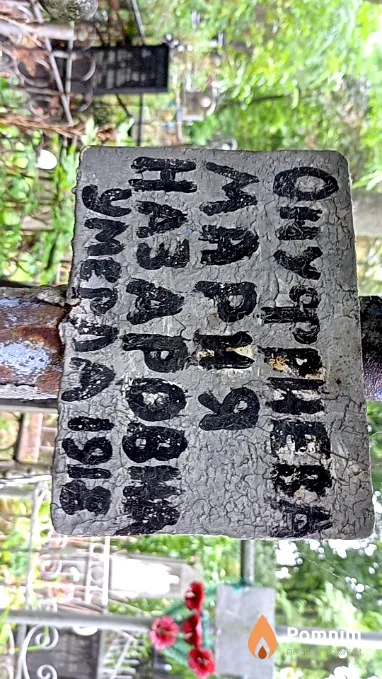 ОНУФРИЕВА
МАРИЯ
НАЗАРОВНА
УМЕРЛА 1918
Pomnim